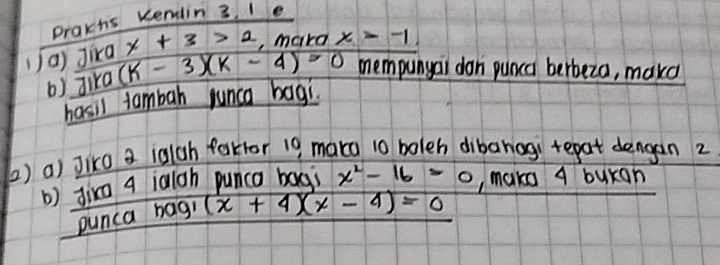 Praktis Kendiri 3.1 e
1) a) Jika x + 3 > 2, maka x > -1.
b) Jika (K - 3)(K - 4) = 0 mempunyai dari punca berbeza, maka
hasil tambah punca bagi.
2) a) Jika 2 ialah faktor 10, maka 10 boleh dibahagi tepat dengan 2.
b) Jika 4 ialah punca bagi x² - 16 = 0, maka 4 bukan
punca bagi (x + 4)(x - 4) = 0